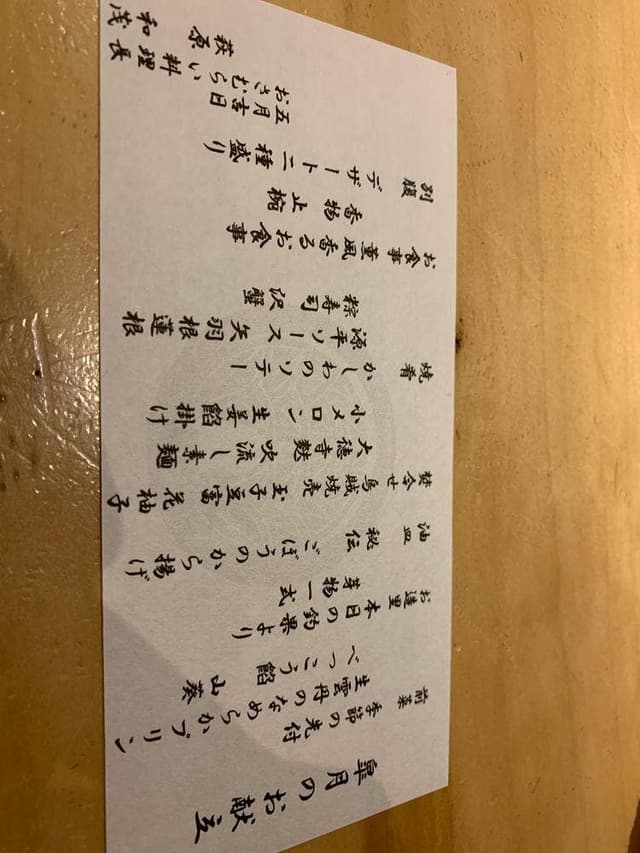 皐月のお献立
前菜
季節の先付
生雲丹のなめらかプリン
べっこう餡 山葵
お造里
本日の釣果より
芽物一式
油皿
秘伝 ごぼうのから揚げ
焚合せ
烏賊焼売 玉子豆富 花柚子
大徳寺麩 吹流し素麺
小メロン 生姜餡掛け
焼肴
かしわのソテー
源平ソース 矢羽根蓮根
粽寿司 沢蟹
お食事
薫風香るお食事
香物 止椀
別腹
デザート二種盛り
五月吉日
おさむらい 料理長
萩原 和茂